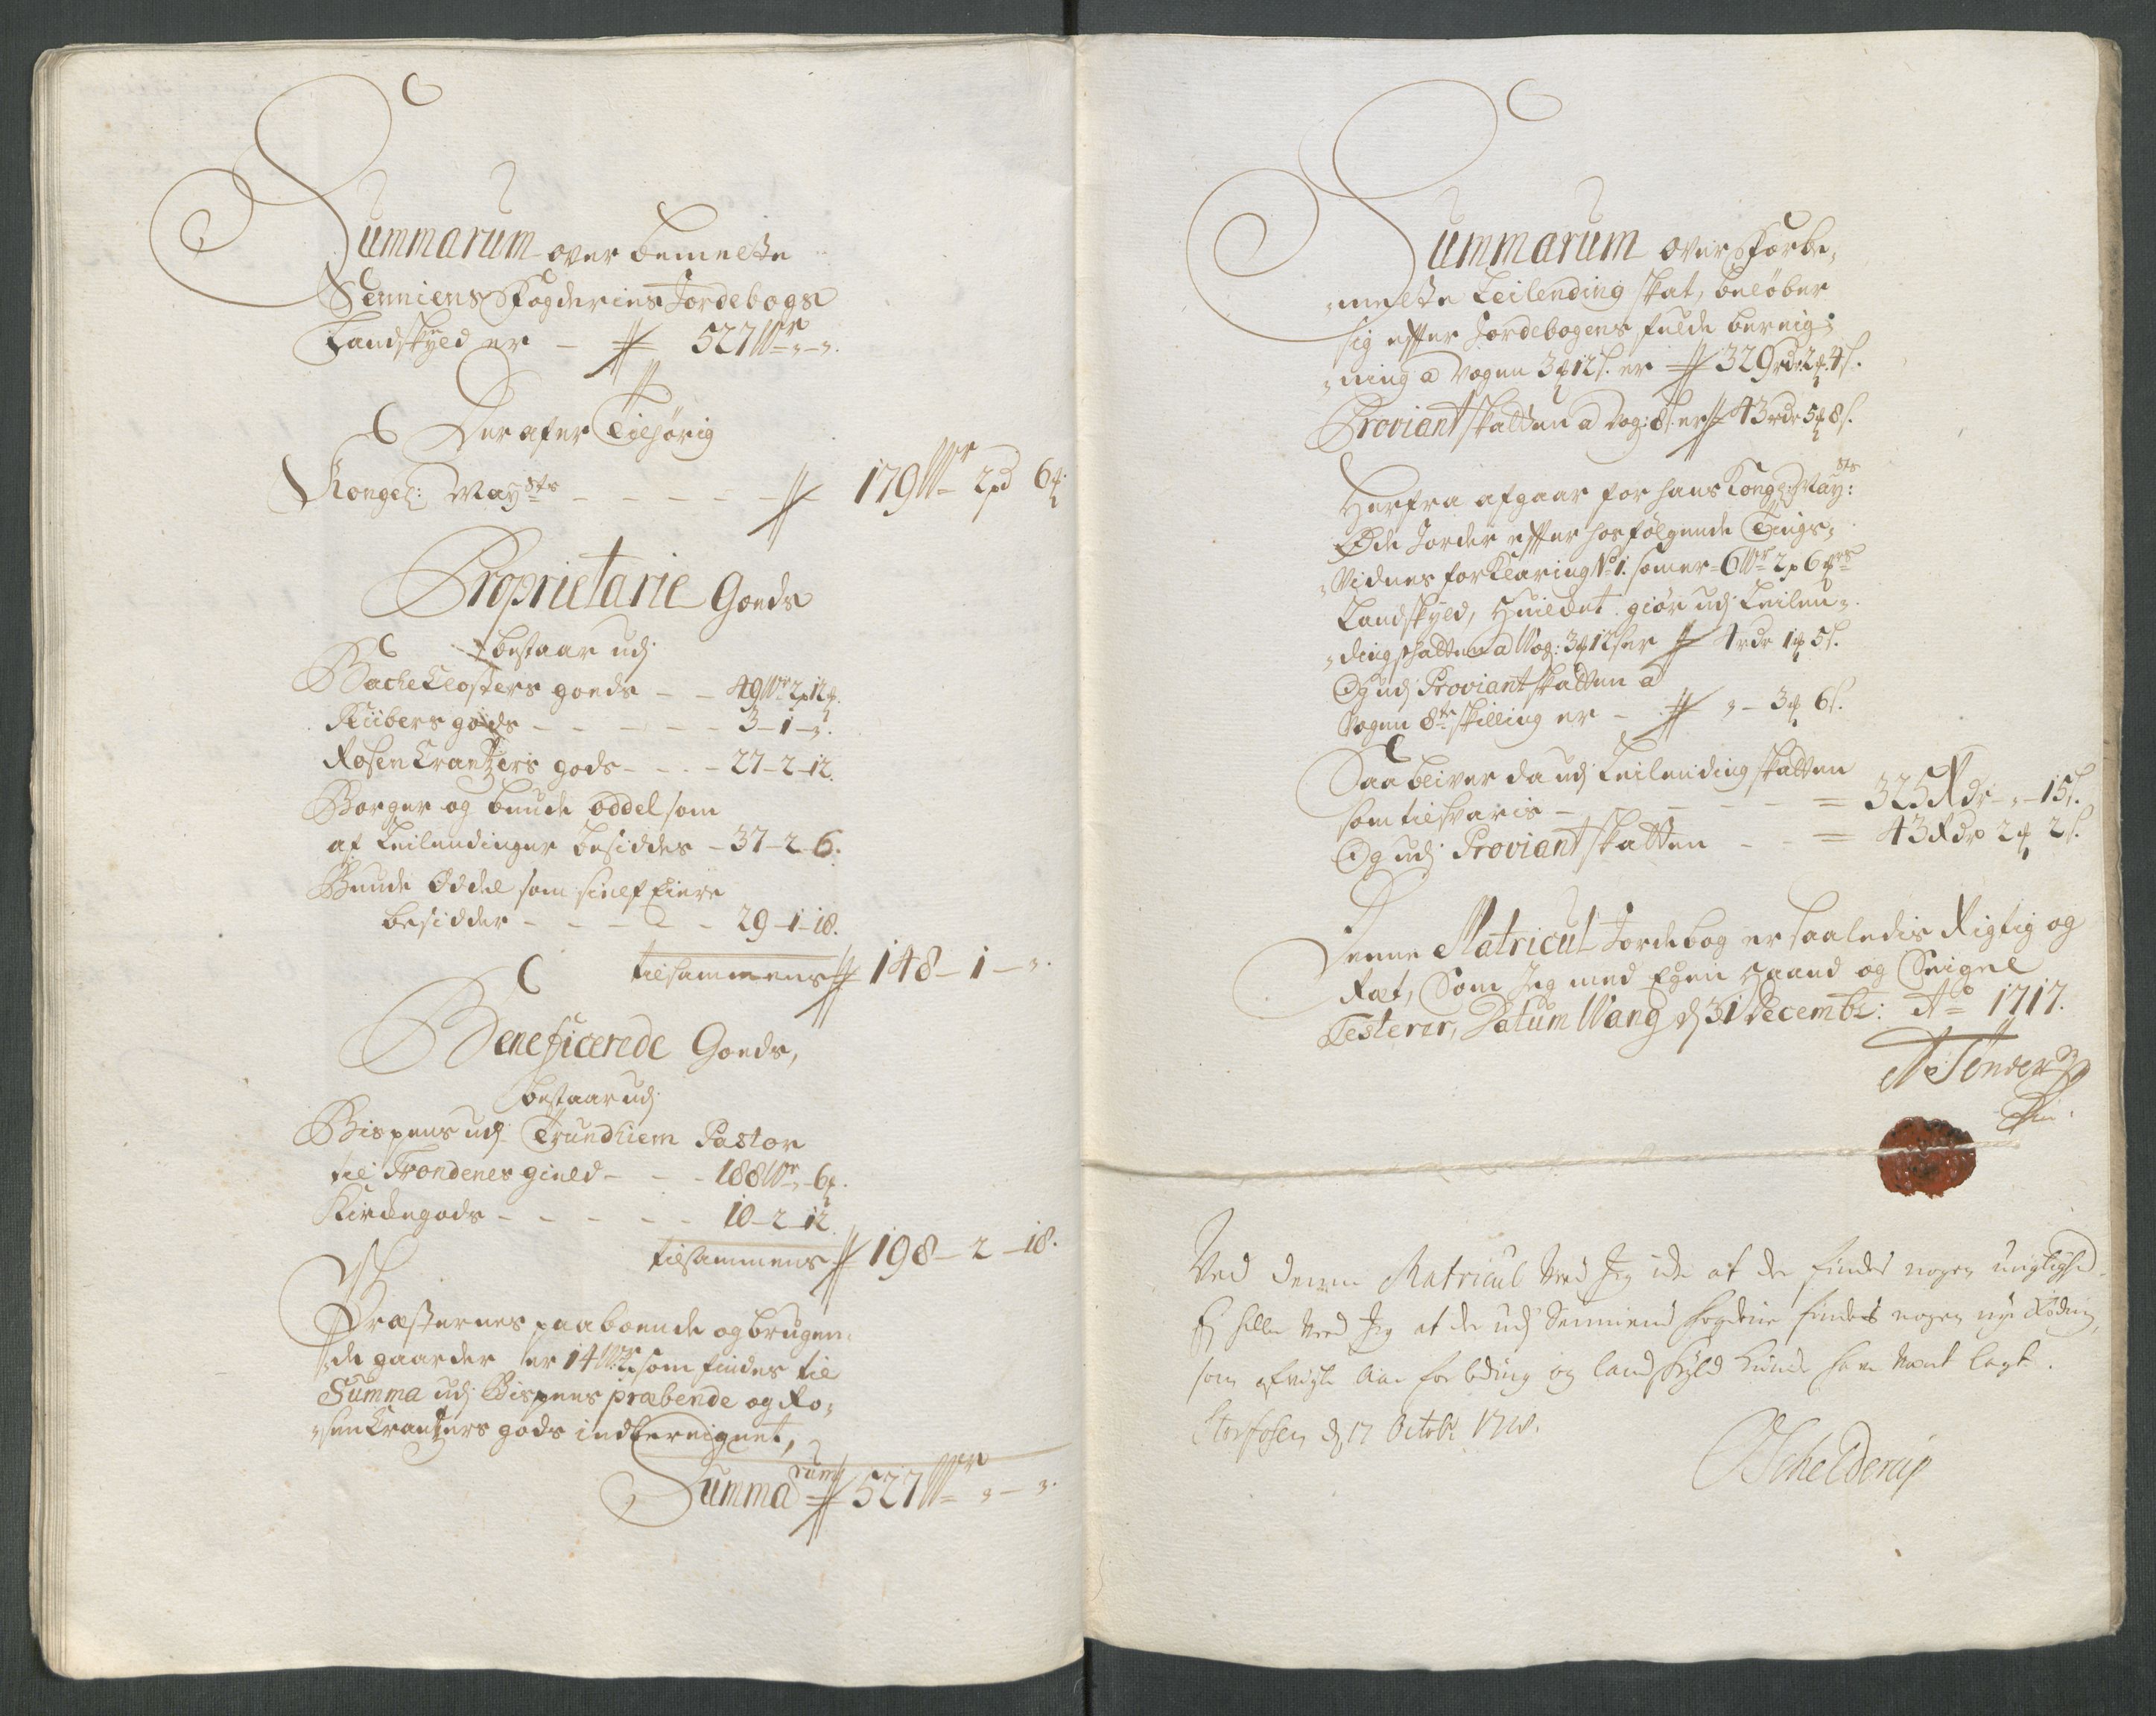 Summarum over bemelte
Senniens Fogderies Jordebogs
Landskyld er – 527 W&r – " – ".
Der af er Tilhörig
Kongel: Maysts – – – – – 179 W&r 2 pd 6 &.
Proprietarie Goeds
bestaar udj
Backe Closters goeds – – 49 W&r 2 p 12 &.
Kiibers gods – – – – – 3 – 1 – ".
Rosen Crantzers gods – – – 27 – 2 – 12.
Borger og bunde oddel som
af Leilendinger besiddes – 37 – 2 – 6.
Bunde Oddel som sielf Eiere
besidder – – – – – 29 – 1 – 18.
tilsammens 148 – 1 – ".
Beneficerede Goeds,
bestaar udj
Bispens udj Trundhiem Pastor
til Trondenes gield – – – 188 W&r " – 6 &.
Kirkegods – – – – – 10 – 2 – 12
tilsammens 198 – 2 – 18.
Præsternes paaboende og brugen-
-de gaarder er 14 W&r: som findes til
Summa udj Bispens præbende og Ro-
-senkrantzers gods indbereignet,
Summarum 527 W&r " – ".
Summarum over Forbe-
-melte Leilending skat, belöber
sig efter Jordebogens fulde bereig-
-ning a Vogen 3 & 12 s. er 329 rdr 2 & 4 s.
Proviant skatten a Vog: 8 s. er 43 rdr 5 & 8 s.
Herfra afgaar for hans Kongl: Maysts:
Öde Jorder efter hosfölgende Tings-
-Vidnes forklaring No 1. som er 6 W&r 2 p 6 &rs
Landskyld, Huilket giör udj Leilen-
-dingskatten a Wog: 3 & 12 s er 4 rdr 1 & 5 s.
Og udj Proviantskatten a
Vogen 8te skilling er – " – 3 & 6 s.
Saa bliver da udj Leilendingskatten
som tilsvaris – – – – 325 Rdr – " – 15 s.
Og udj Proviantskatten – – 43 Rdr 2 & 2 s.
Denne Matricul Jordebog er saaledis Rigtig og
Ræt, Som Jeg med Egen Haand og Seigel
Testerer, Datum Wang d 31 Decembr: Ao 1717.
A Tönder
Ved denne Matricul Veed Jeg icke at der findes nogen urigtighed
Ej heller Veed Jeg at der udj Senniens fogderie findes nogen nye Rödning
som afvigte Aar for leding og landskyld kunde have været lagt.
Storfosen d 17 Octobr 1718.
Schelderup